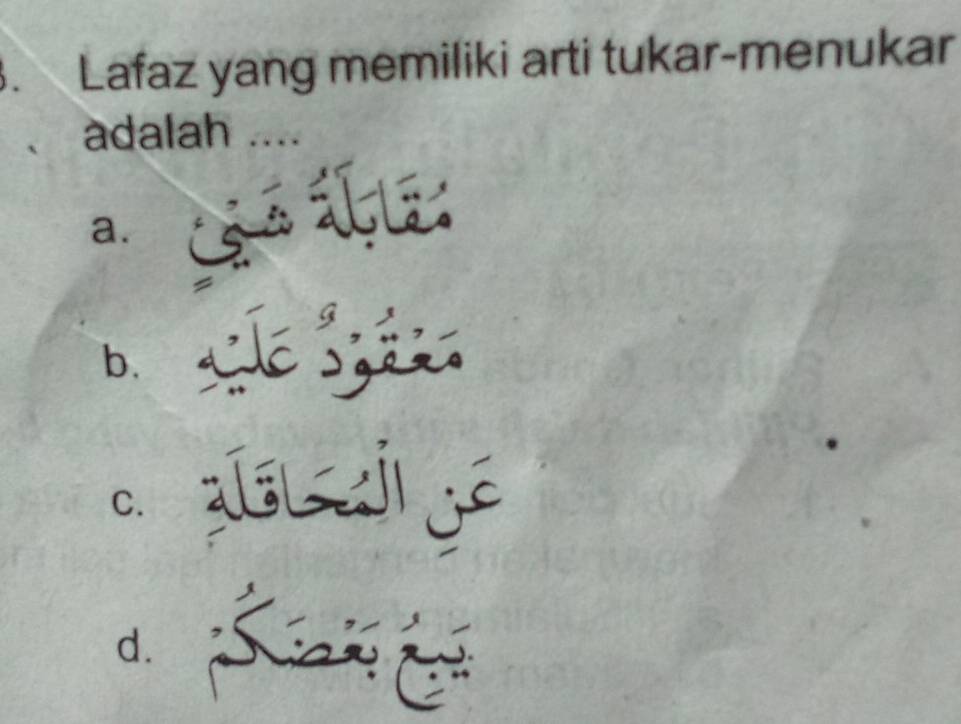 3. Lafaz yang memiliki arti tukar-menukar
adalah ....
a. مُقَابَلَةُ شَيْئٍ
b. مَعْقُوْدٌ عَلَيْهِ
c. عَنِ الْمُحَاقَلَةِ
d. يَبِعُ بَعْضَكُمْ